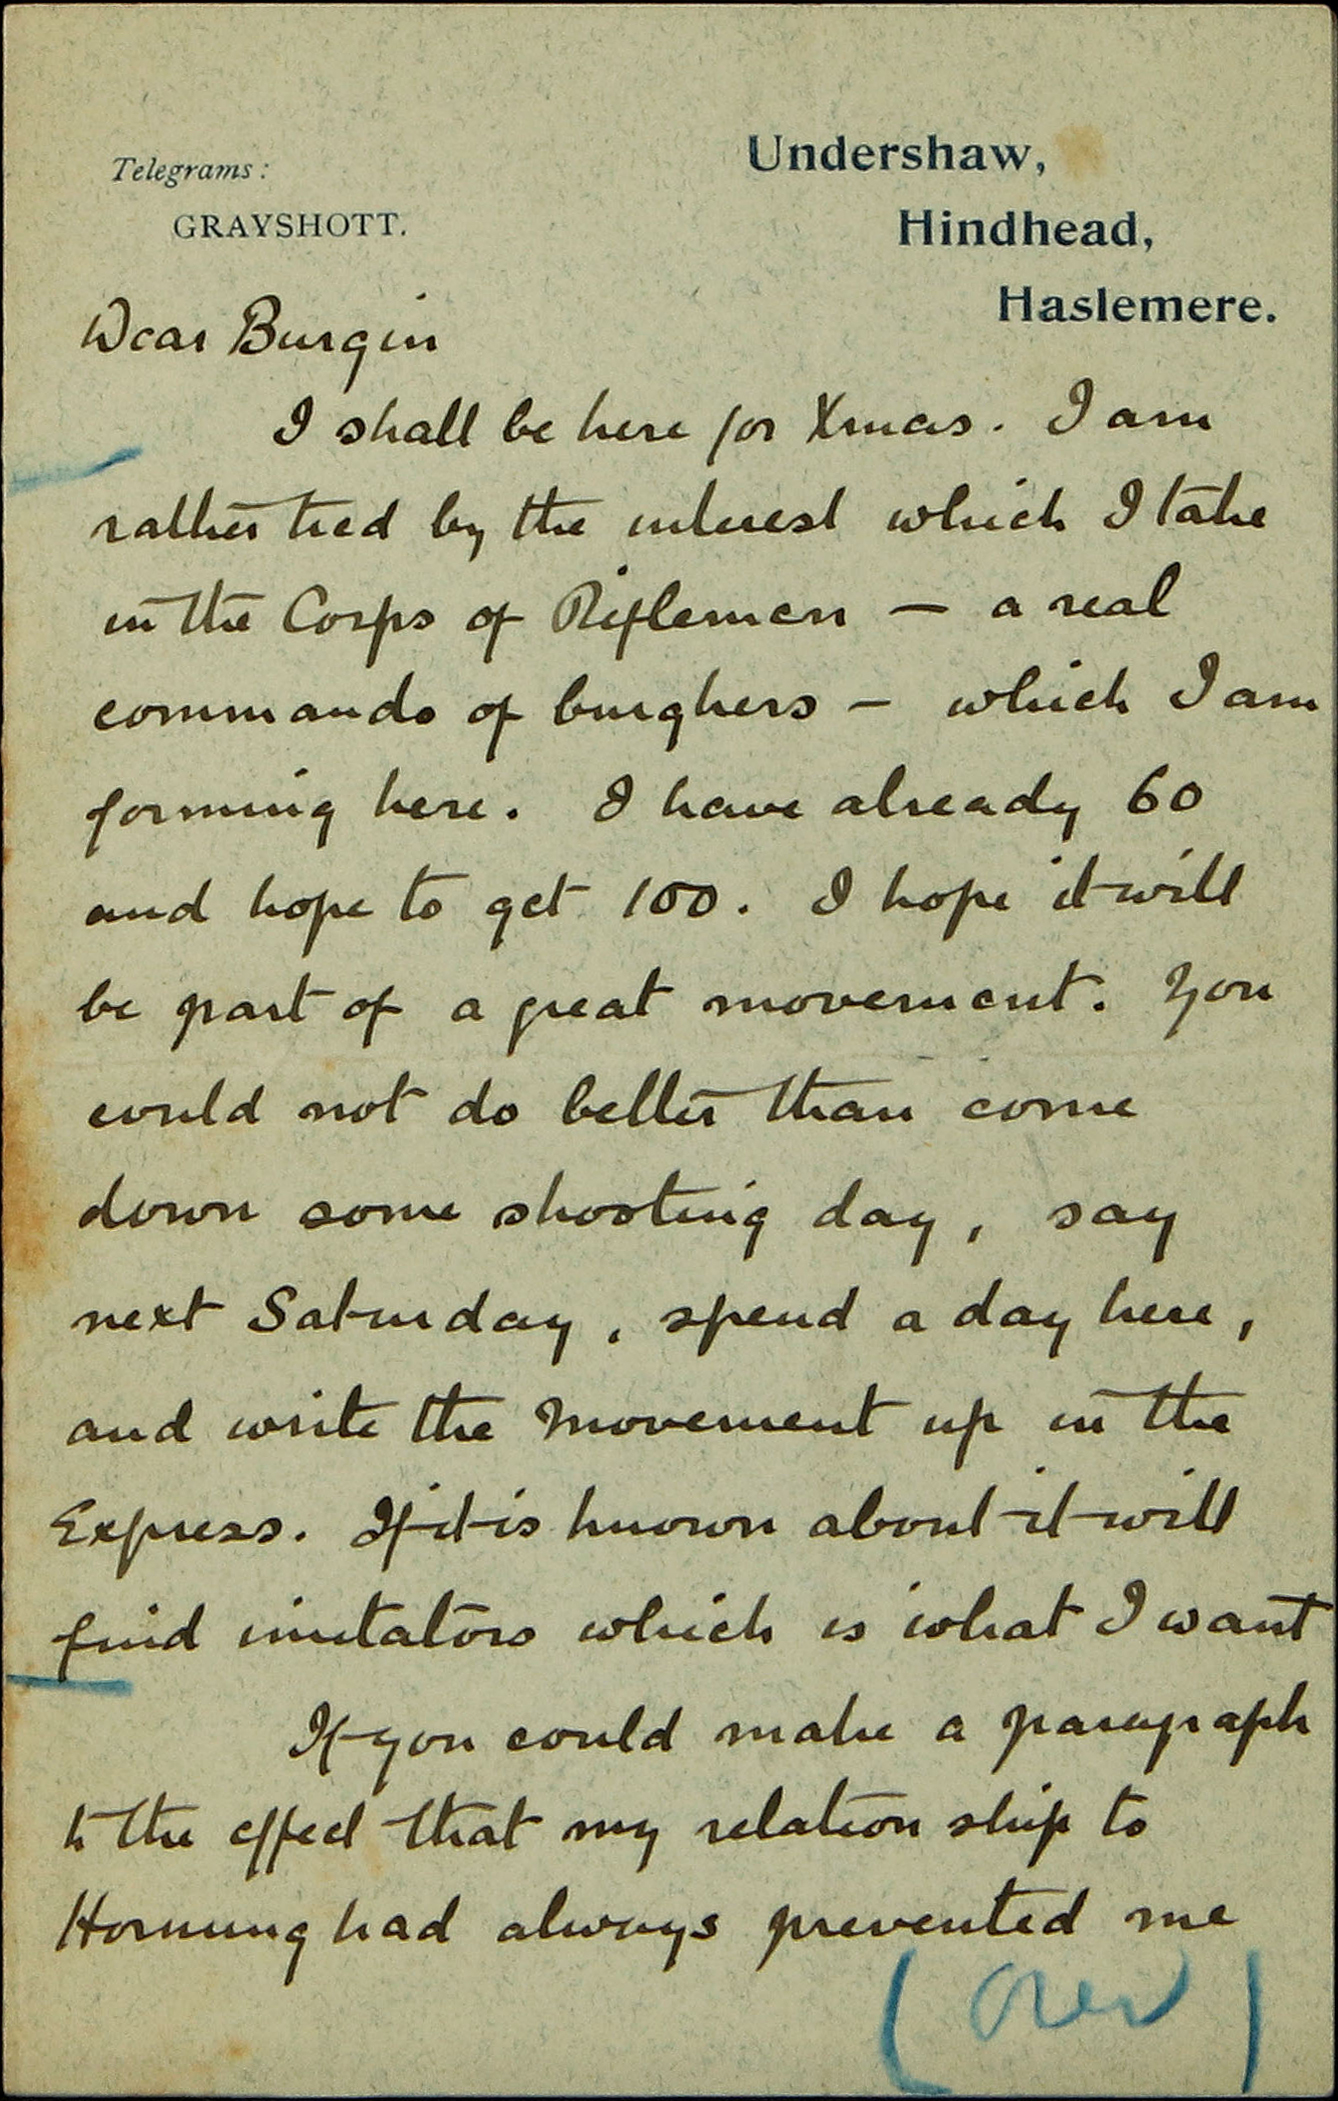 Telegrams:
GRAYSHOTT.
Undershaw,
Hindhead,
Haslemere.
Dear Burgin
I shall be here for Xmas. I am
rather tied by the interest which I take
in the Corps of Riflemen — a real
commando of burghers – which I am
forming here. I have already 60
and hope to get 100. I hope it will
be part of a great movement. You
could not do better than come
down some shooting day, say
next Saturday, spend a day here,
and write the movement up in the
Express. If it is known about it will
find imitators which is what I want
If you could make a paragraph
to the effect that my relation ship to
Hornung had always prevented me
(Over)